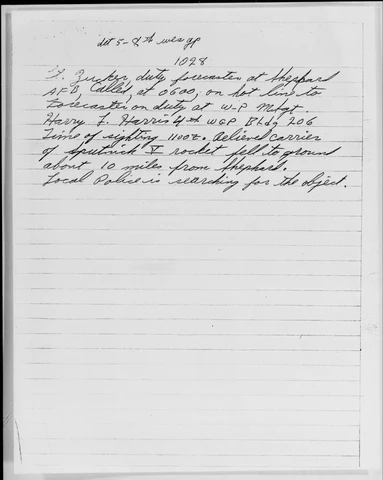 det 5 - 8th wea gp
1028
Lt. Zucker, duty forecaster at Sheppard
AFB, Called, at 0600, on hot line to
Forecaster on duty at W-P M/Sgt.
Harry F. Harris 4th WGP Bldg 206
Time of sighting 1100Z. Believed carrier
of Sputnick V rocket fell to ground
about 10 miles from Shephard.
Local Police is searching for the object.